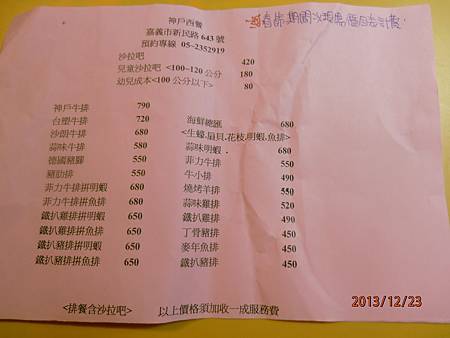 神戶西餐
嘉義市新民路 643 號
預約專線 05-2352919
春節期間以現場價目表計費
沙拉吧 420
兒童沙拉吧 <100~120 公分 180
幼兒成本<100 公分以下> 80
神戶牛排 790
台塑牛排 720
沙朗牛排 680
蒜味牛排 580
德國豬腳 550
豬肋排 550
菲力牛排拼明蝦 680
菲力牛排拼魚排 680
鐵扒雞排拼明蝦 650
鐵扒雞排拼魚排 650
鐵扒豬排拼明蝦 650
鐵扒豬排拼魚排 650
海鮮總匯 680
<生蠔.扇貝.花枝.明蝦.魚排>
蒜味明蝦 680
菲力牛排 550
牛小排 490
燒烤羊排 550
蒜味雞排 520
鐵扒雞排 490
丁骨豬排 450
麥年魚排 450
鐵扒豬排 450
<排餐含沙拉吧> 以上價格須加收一成服務費
2013/12/23